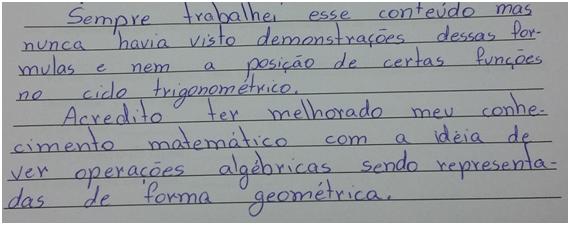 Sempre trabalhei esse conteúdo mas
nunca havia visto demonstrações dessas fór-
mulas e nem a posição de certas funções
no ciclo trigonométrico.
Acredito ter melhorado meu conhe-
cimento matemático com a idéia de
ver operações algébricas sendo representa-
das de forma geométrica.